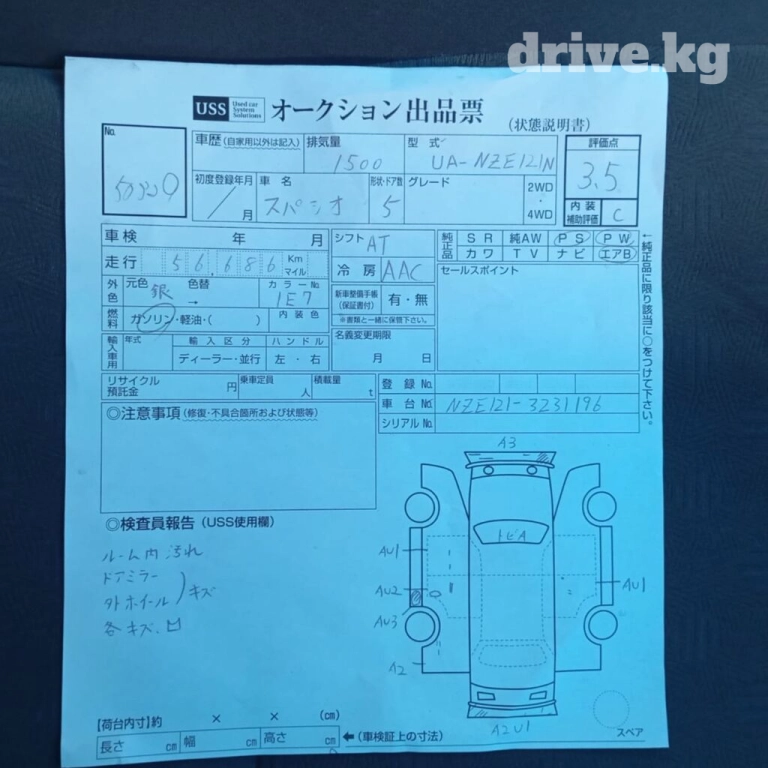 drive.kg
USS Used car System Solutions オークション出品票 (状態説明書)
No.
車歴 (自家用以外は記入) 排気量 型式 評価点
1500 UA-NZE121N 3.5
初度登録年月 車名 形状・ドア数 グレード 2WD・4WD 内装補助評価 C
/ 月 スパシオ 5
車検 年 月 シフト AT 純正品 SR 純AW PS PW
走行 56,686 Km マイル 冷房 AAC カワ TV ナビ エアB
外色 元色 銀 色替 → カラーNo. 1E7 新車整備手帳 (保証書付) 有・無 セールスポイント
※書類と一緒に保管下さい。
燃料 ガソリン・軽油・( ) 内装色 名義変更期限
輸入車用 年式 輸入区分 ハンドル 月 日
ディーラー・並行 左・右
←純正品に限り該当に○をつけて下さい。
リサイクル預託金 円 乗車定員 人 積載量 t 登録No.
車台No. NZE121-3231196
シリアルNo.
◎注意事項 (修復・不具合箇所および状態等)
A3
◎検査員報告 (USS使用欄)
トビA
ルーム内汚れ
ドアミラー
外ホイール ) キズ
各キズ、凹
AU1
AU2
AU3
A2
AU1
A2U1
スペア
【荷台内寸】約 × × (cm)
長さ cm 幅 cm 高さ cm ←(車検証上の寸法)